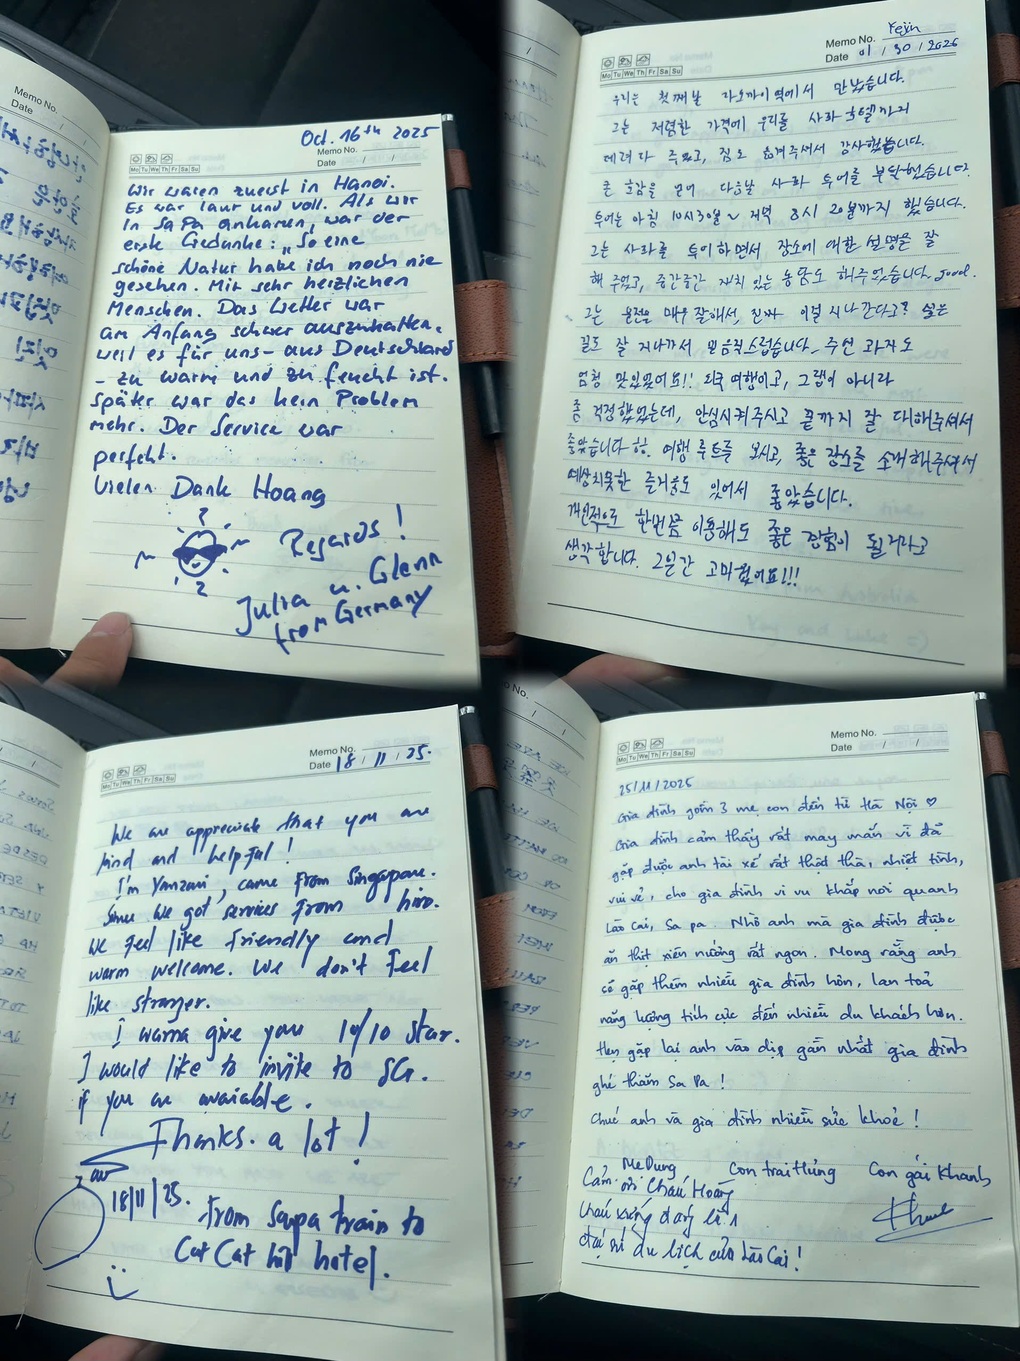 Memo No.
Date
Oct. 16th 2025
Memo No.
Date / /
Mo Tu We Th Fr Sa Su
Wir waren zuerst in Hanoi.
Es war laut und voll. Als wir
in SaPa ankamen, war der
erste Gedanke: „So eine
schöne Natur habe ich noch nie
gesehen. Mit sehr herzlichen
Menschen. Das Wetter war
am Anfang schwer auszuhalten,
weil es für uns - aus Deutschland
- zu warm und zu feucht ist.
Später war das kein Problem
mehr. Der Service war
perfekt.
Vielen Dank Hoang
Regards!
Julia u. Glenn
from Germany
Memo No. Yejin
Date 01 / 30 / 2026
Mo Tu We Th Fr Sa Su
우리는 첫째날 라오까이역에서 만났습니다.
그는 저렴한 가격에 우리를 사파 호텔까지
데려다 주었고, 짐도 옮겨주셔서 감사했습니다.
큰 호감을 얻어 다음날 사파 투어를 부탁했습니다.
투어는 아침 10시30분 ~ 저녁 8시 20분까지 했습니다.
그는 사파를 투어하면서 장소에 대한 설명을 잘
해 주었고, 중간중간 재치 있는 농담도 해주었습니다. good.
그는 운전을 매우 잘해서, 진짜 이걸 지나간다고? 싶은
길도 잘 지나가서 믿음직스럽습니다. 주변 과자도
엄청 맛있었어요!! 외국 여행이고, 그랩이 아니라
좀 걱정했었는데, 안심시켜주시고 끝까지 잘 대해주셔서
좋았습니다 하. 여행 루트를 보시고, 좋은 장소를 소개해주셔서
예상치못한 즐거움도 있어서 좋았습니다.
개인적으로 한번쯤 이용해도 좋은 경험이 될거라고
생각합니다. 2일간 고마웠어요!!!
Memo No.
Date 18 / 11 / 25.
Mo Tu We Th Fr Sa Su
We are appreciate that you are
kind and helpful!
I'm Yanzani, came from Singapore.
Since we got services from him.
We feel like friendly and
warm welcome. We don't feel
like stranger.
I wanna give your 10/10 star.
I would like to invite to SG.
if you are avaiable.
Thanks. a lot!
18/11/25.
From Sapa train to
Cat Cat hill hotel.
No.
Memo No.
Date / /
Mo Tu We Th Fr Sa Su
25/11/2025
Gia đình gồm 3 mẹ con đến từ Hà Nội ♡
Gia đình cảm thấy rất may mắn vì đã
gặp được anh tài xế rất thật thà, nhiệt tình,
vui vẻ, cho gia đình vi vu khắp nơi quanh
Lào Cai, Sa pa. Nhờ anh mà gia đình được
ăn thịt xiên nướng rất ngon. Mong rằng anh
sẽ gặp thêm nhiều gia đình hơn, lan toả
năng lượng tích cực đến nhiều du khách hơn.
Hẹn gặp lại anh vào dịp gần nhất gia đình
ghé thăm Sa Pa!
Chúc anh và gia đình nhiều sức khoẻ!
Mẹ Dung, Con trai Hùng Con gái Khanh
Cảm ơn Cháu Hoàng
Cháu xứng đáng là 1
đại sứ du lịch của Lào Cai!